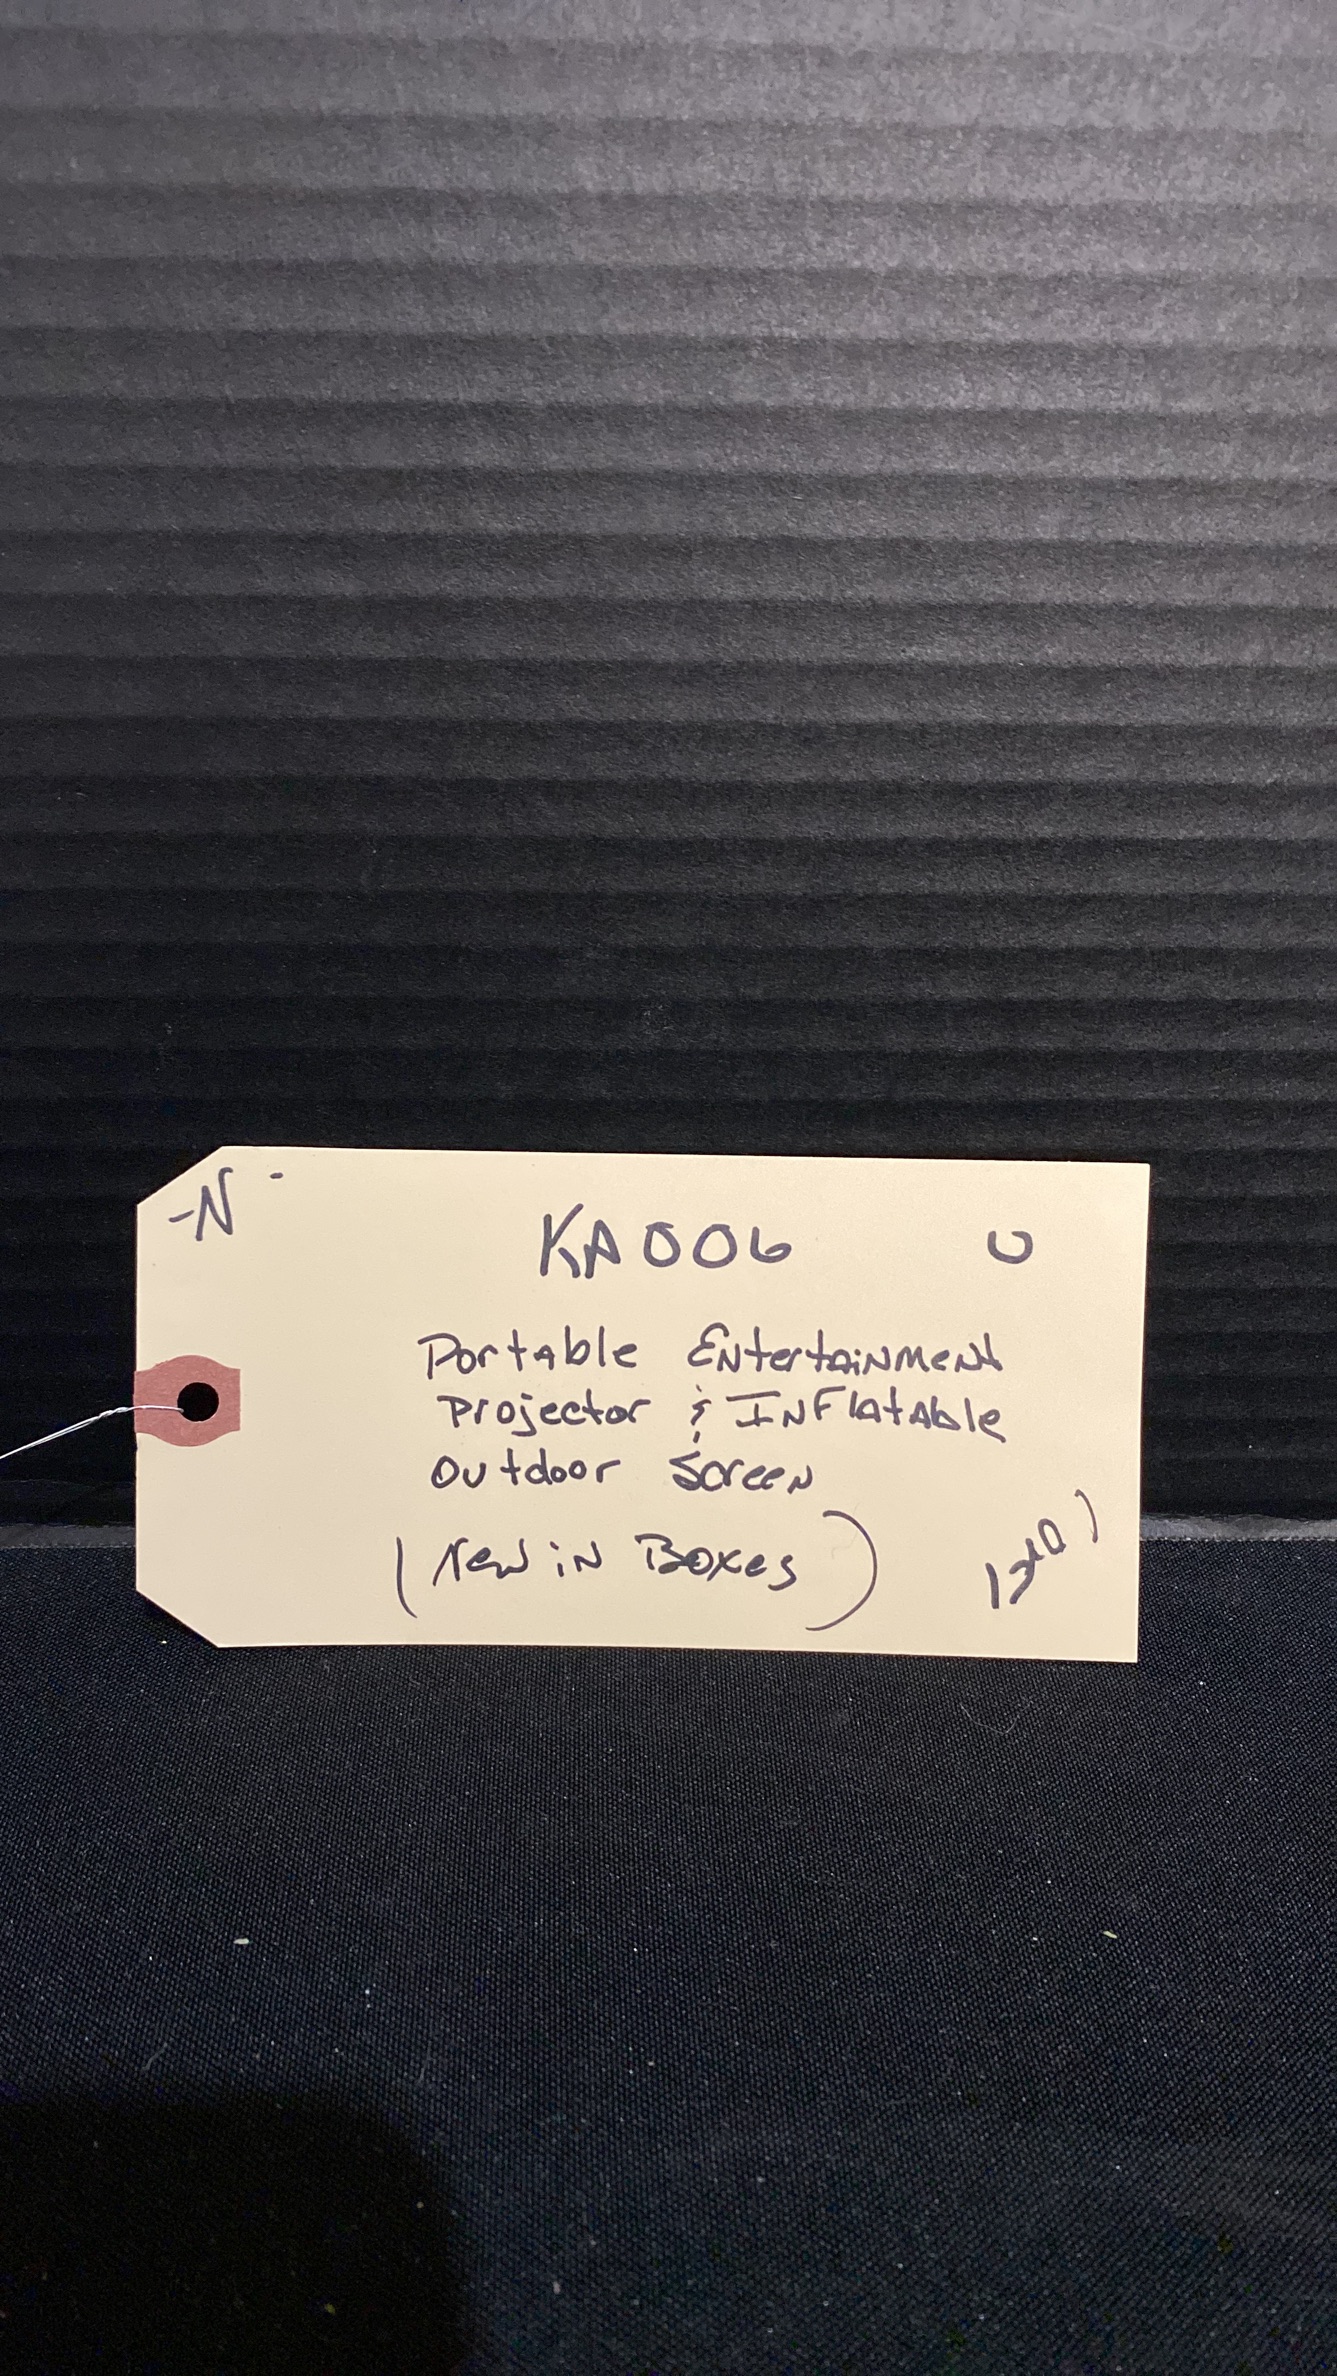 -N -
KA006 U
Portable Entertainment
Projector & Inflatable
Outdoor Screen
(New in Boxes)